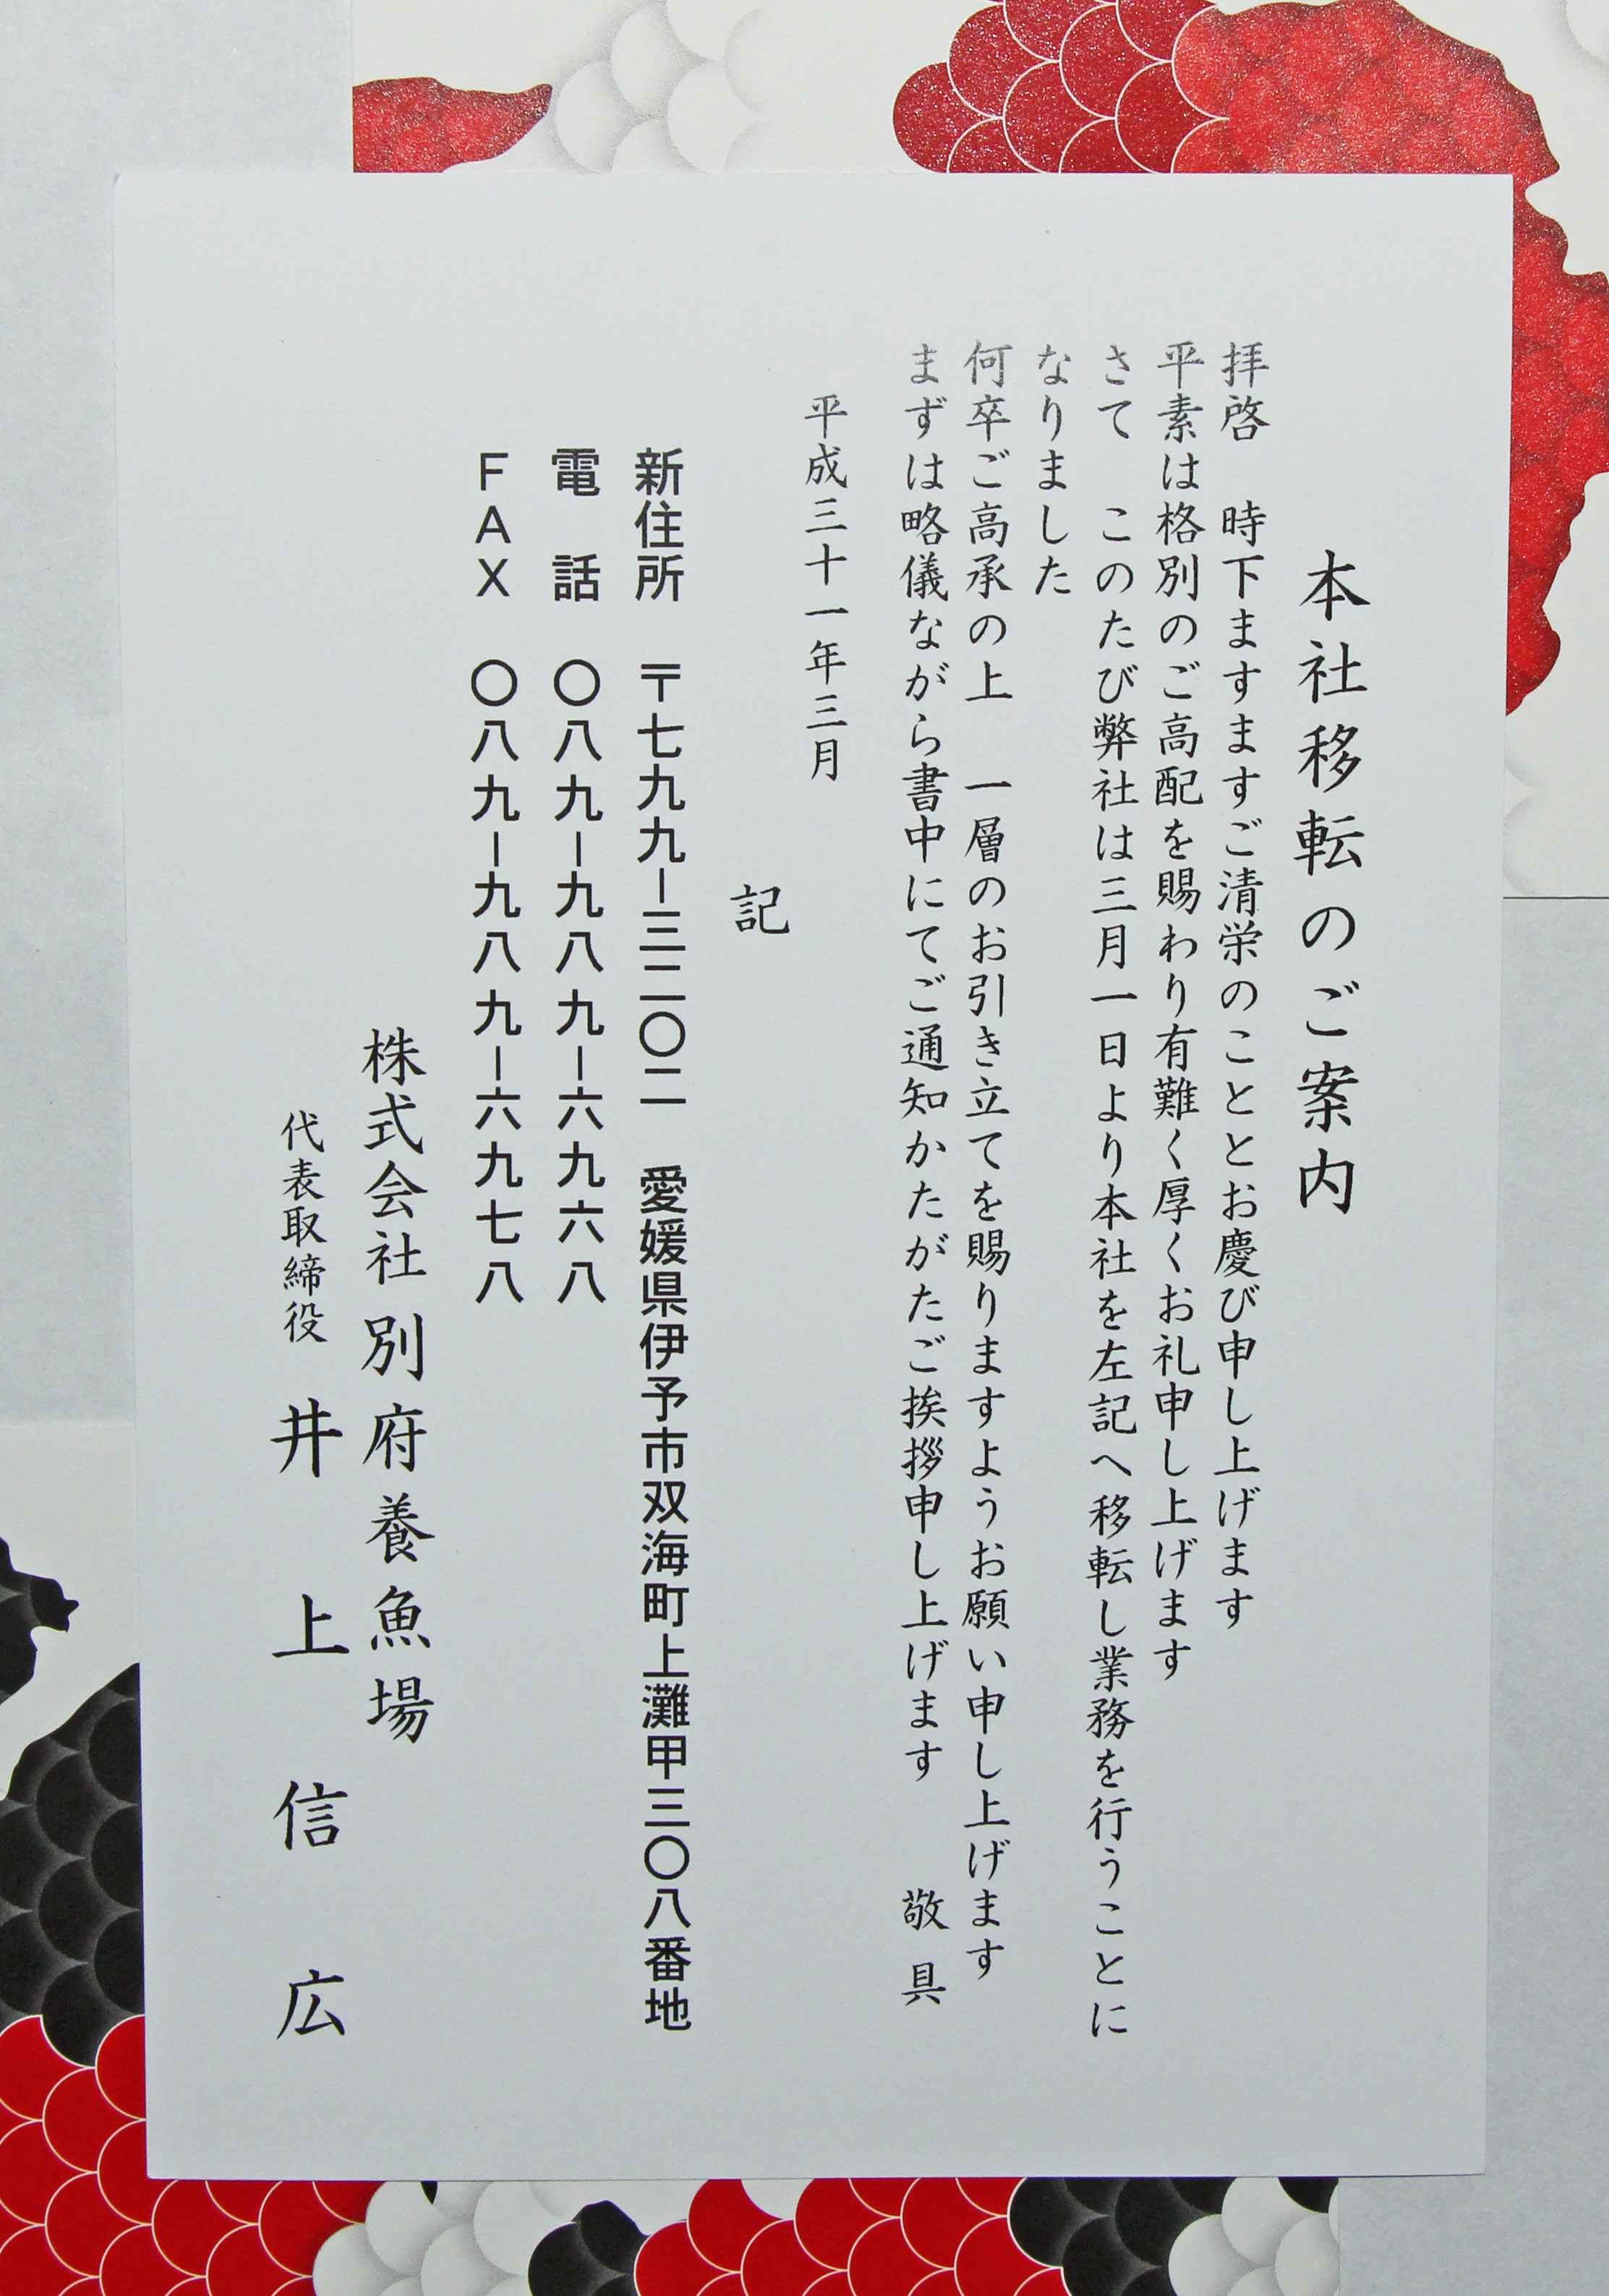 本社移転のご案内
拝啓　時下ますますご清栄のこととお慶び申し上げます
平素は格別のご高配を賜わり有難く厚くお礼申し上げます
さて　このたび弊社は三月一日より本社を左記へ移転し業務を行うことに
なりました
何卒ご高承の上　一層のお引き立てを賜りますようお願い申し上げます
まずは略儀ながら書中にてご通知かたがたご挨拶申し上げます　　敬具
平成三十一年三月
記
新住所　〒七九九−三二〇二　愛媛県伊予市双海町上灘甲三〇八番地
電　話　〇八九−九八九−六九六八
ＦＡＸ　〇八九−九八九−六九七八
株式会社 別府養魚場
代表取締役　井上信広